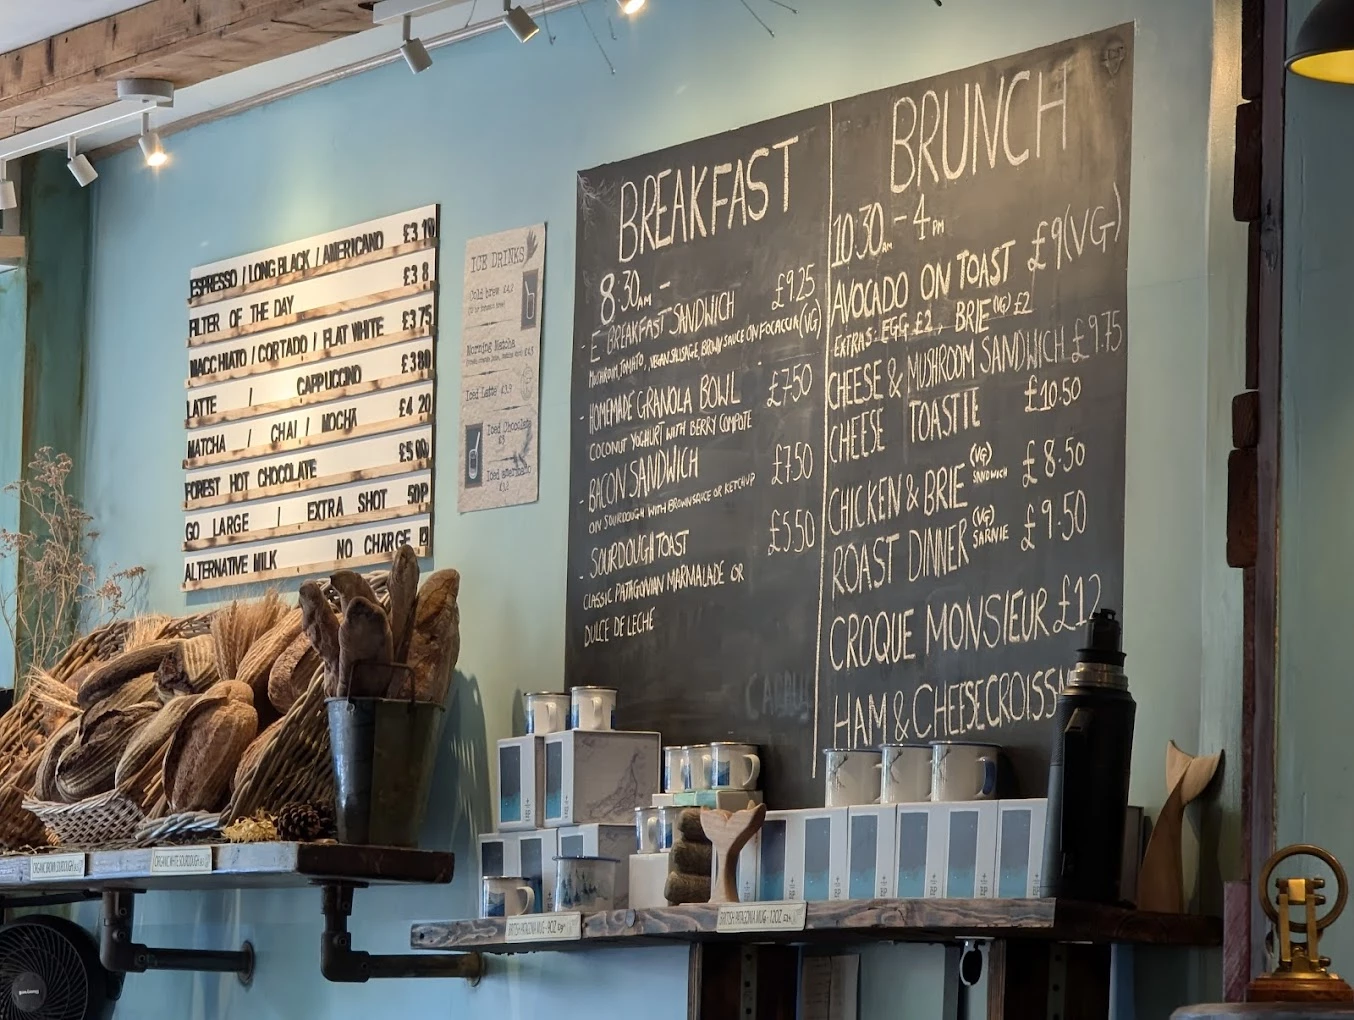 ESPRESSO / LONG BLACK / AMERICANO £3 10
FILTER OF THE DAY £3 8
MACCHIATO / CORTADO / FLAT WHITE £3 75
LATTE / CAPPUCCINO £3 80
MATCHA / CHAI / MOCHA £4 20
FOREST HOT CHOCOLATE £5 00
GO LARGE | EXTRA SHOT 50P
ALTERNATIVE MILK NO CHARGE
ICE DRINKS
Cold brew
Morning Matcha
Iced Latte £3.9
Iced Chocolate
Iced
BREAKFAST
8:30AM -
- E BREAKFAST SANDWICH £9.25
MUSHROOM, TOMATO, VEGAN SAUSAGE, BROWN SAUCE ON FOCACCIA (VG)
- HOMEMADE GRANOLA BOWL £7.50
COCONUT YOGHURT WITH BERRY COMPOTE
- BACON SANDWICH £7.50
ON SOURDOUGH WITH BROWN SAUCE OR KETCHUP
- SOURDOUGH TOAST £5.50
CLASSIC PATAGONIAN MARMALADE OR
DULCE DE LECHE
BRUNCH
10:30AM - 4PM
AVOCADO ON TOAST £9 (VG)
EXTRAS: EGG £2, BRIE (VG) £2
CHEESE & MUSHROOM SANDWICH £9.75
CHEESE TOASTIE £10.50
CHICKEN & BRIE (VG) SANDWICH £8.50
ROAST DINNER (VG) SARNIE £9.50
CROQUE MONSIEUR £12
HAM & CHEESE CROISS
ORGANIC BROWN SOURDOUGH
ORGANIC WHITE SOURDOUGH
BRITISH PATAGONIA MUG - 8OZ
BRITISH PATAGONIA MUG - 12OZ
Honeywell